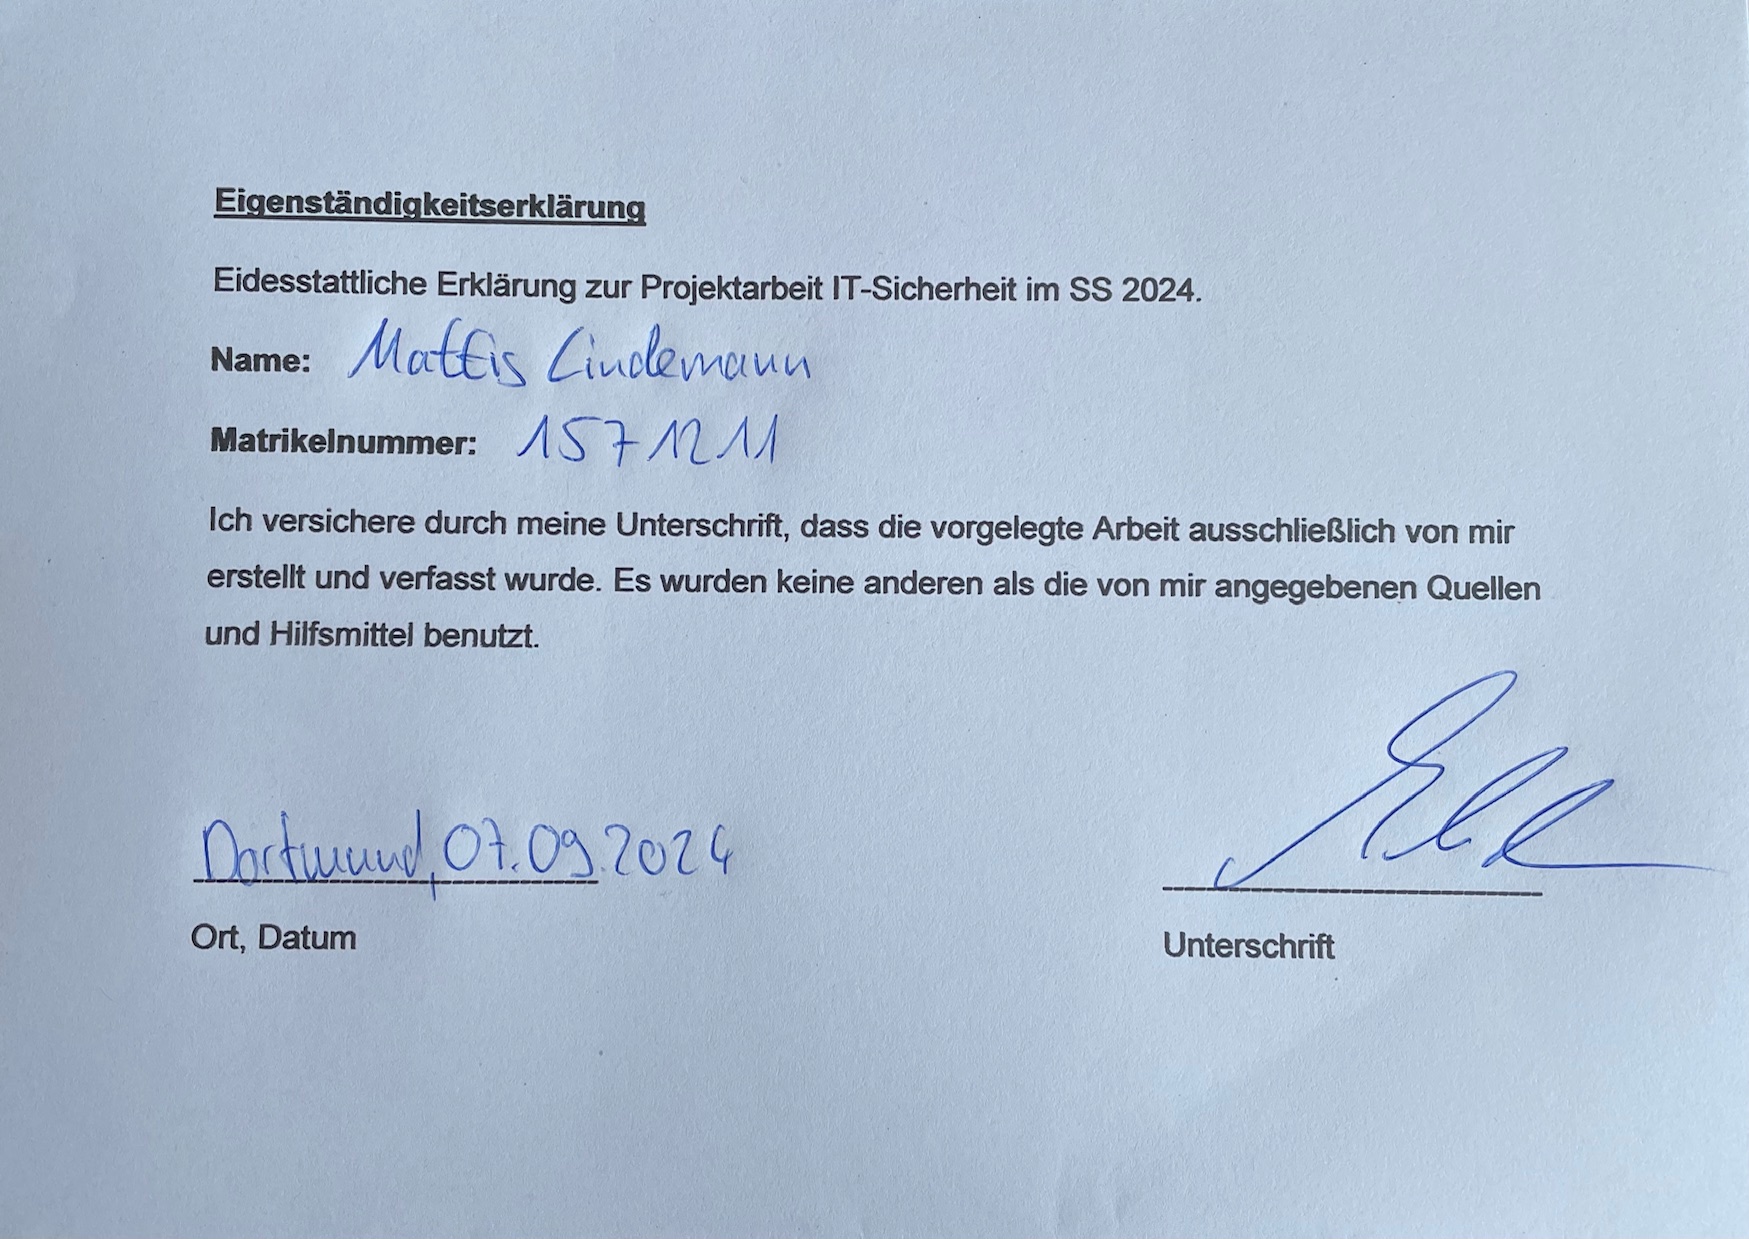 Eigenständigkeitserklärung
Eidesstattliche Erklärung zur Projektarbeit IT-Sicherheit im SS 2024.
Name: Mattis Lindemann
Matrikelnummer: 1571211
Ich versichere durch meine Unterschrift, dass die vorgelegte Arbeit ausschließlich von mir
erstellt und verfasst wurde. Es wurden keine anderen als die von mir angegebenen Quellen
und Hilfsmittel benutzt.
Dortmund, 07.09.2024
Ort, Datum
Unterschrift